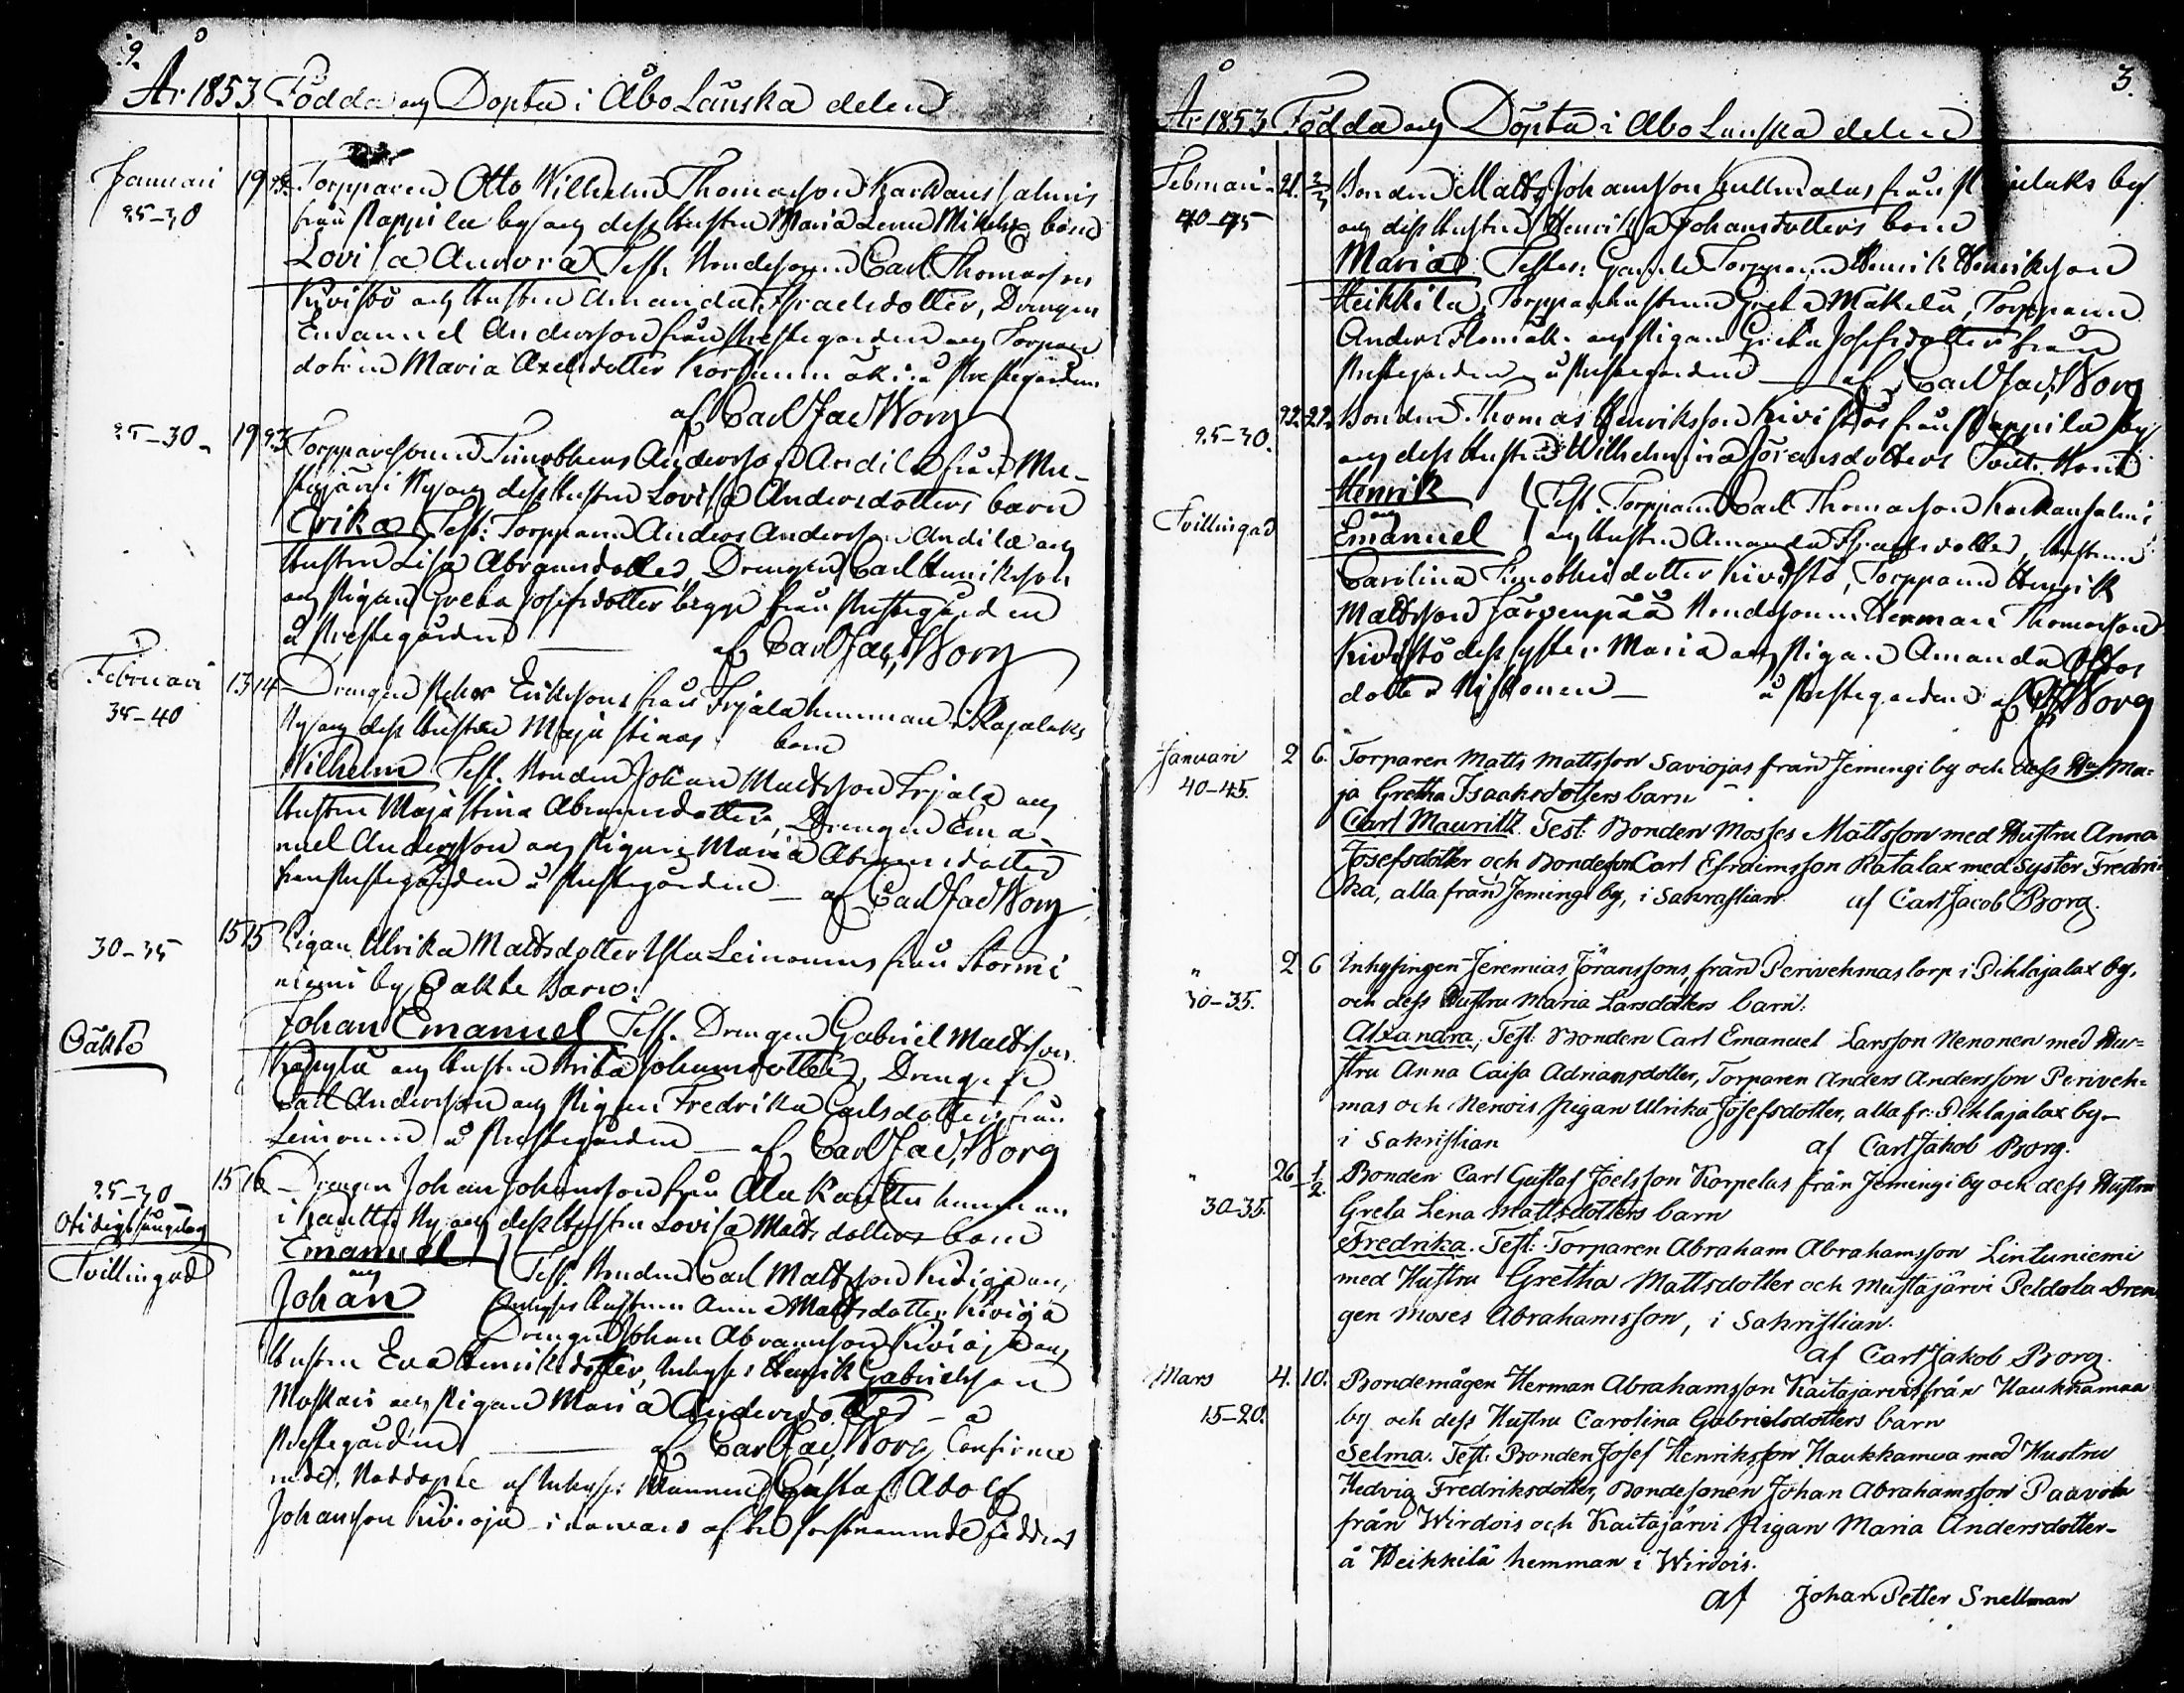 2.
År 1853 Födda och Döpta i Åbo Länska delen
Januari 19 23. Torpparen Otto Wilhelm Thomasson Karkaussalmis
25-30 från Pappila by och dess hustru Maria Lena Mikelsd barn
Lovisa Aurora Test. Bondesonen Carl Thomasson
Kivistö och hustru Amanda Israelsdotter, Drengen
Emanuel Andersson från Prestegården och Torpare
dottren Maria Axelsdotter Korhumäki å Prestegården
af Carl Jac Borg
25-30 19 23 Torpparesonen Timotheus Andersson Andila från Mu-
stajärvi by och dess hustru Lovisa Andersdotters barn
Erika Test: Torpparen Anders Andersson Andila och
hustru Lisa Abramsdotter, Drengen Carl Henriksson
och Pigan Greta Josefsdotter begge från Prestegården
å Prestegården af Carl Jac, Borg
Februari 13 14 Drengen Petter Erikssons från Frjala hemman i Kapalaks
35-40 by och dess hustru Maja Stinas barn
Wilhelm Test. Bonden Johan Mattsson Frjala och
hustru Maja Stina Abramsdotter, Drengen Ema-
nuel Andersson och Pigan Maria Abramsdotter
från Prestegården å Prestegården - af Carl Jac Borg
30-35 15 15 Pigan Ulrika Mattsdotter Leinonens från Stormi-
niemi by Oäkte Barn:
Johan Emanuel Test. Drengen Gabriel Mattsson
Oäkta
och hustru Brita Johansdotter, Drengen
Carl Andersson och Pigan Fredrika Carlsdotter från
Leinonen å Prestegården - af Carl Jac, Borg
25-30 15 16 Drengen Johan Johansson från Ala Kauttu hemman
i Kauttu by och dess hustru Lovisa Mattsdotters barn
Emanuel
och
Johan
Tvillingar
Test. Bonden Carl Mattsson Kivioja och
Inhyses hustrun Anna Mattsdotter Kivioja
Drengen Johan Abramsson Kivioja och
hustru Eva Henriksdotter, Inhyses Henrik Gabrielsson
och Pigan Maria Andersdotter - å
Prestegården af Carl Jac, Borg Confirme
rades Nöddopte af Inhyses Mannen Gustaf Adolf
Johansson Kivioja - i närvaro af
3.
År 1853 Födda och Döpta i Åbo Länska delen
Februari 21. Bonden Matts Johansson från by
40-45 och dess hustru Henrika Johansdotters barn
Maria Testes: Gamle Torpparen Henrik Henriksson
Heikkila, Torpparehustrun Greta Mäkelä, Torpparen
Anders och Pigan Greta Josefsdotter från
Prestegården å Prestegården af Carl Jac, Borg
25-30. 22. 27. Bonden Thomas Henriksson Kivistös från Pappila by
och dess hustru Wilhelmina Göransdotters Tvill. barn
Henrik
och
Emanuel
Tvillingar
Test. Torpparen Carl Thomasson Karkausalmi
och hustru Amanda Israelsdotter, hustrun
Carolina Timotheidotter Kivistö, Torpparen Henrik
Mattsson Järvenpää Bondesonen Herman Thomasson
Kivistö dess syster Maria och Pigan Amanda
dotter Niskonen - å Prestegården af CJ Borg
Januari 2 6. Torparen Matts Mattsson Saviojas från Jemingi by och dess Hu Ma=
40-45. ja Gretha Isaaksdotters barn
Carl Mauritz. Test: Bonden Moses Mattsson med Hustru Anna
Josefsdotter och Bondeson Carl Efraimsson Ratalax med Syster Fredri-
ka, alla från Jemingi by, i Sakrastian. af Carl Jacob Borg.
" 2 6 Inhysingen Jeremias Jöranssons, från Perivehmas torp i Pihlajalax by,
30-35. och dess Hustru Maria Larsdotters barn:
Alexandra, Test: Bonden Carl Emanuel Larsson Nenonen med Hu=
stru Anna Caisa Adriansdotter, Torparen Anders Andersson Periveh=
mas och Nenois Pigan Ulrika Josefsdotter, alla fr. Pihlajalax by -
i Sakristian af Carl Jakob Borg.
" 26 1/2. Bonden Carl Gustaf Joelsson Korpelas från Jemingi by och dess Hustru
30-35. Greta Lena Mattsdotters barn
Fredrika. Test: Torparen Abraham Abrahamsson Lintuniemi
med Hustru Gretha Mattsdotter och Mustajärvi Peldola Dren
gen Moses Abrahamsson, i Sakristian.
af Carl Jakob Borg.
Mars 4. 10. Bondemågen Herman Abrahamsson Kaitajärvis från Haukkamaa
15-20. by och dess Hustru Carolina Gabrielsdotters barn
Selma. Test: Bonden Josef Henriksson Haukkamaa med Hustru
Hedvig Fredriksdotter, Bondesonen Johan Abrahamsson Paavola
från Wirdois och Kaitajärvi Pigan Maria Andersdotter -
å Heikkilä hemman i Wirdois.
af Johan Petter Snellman